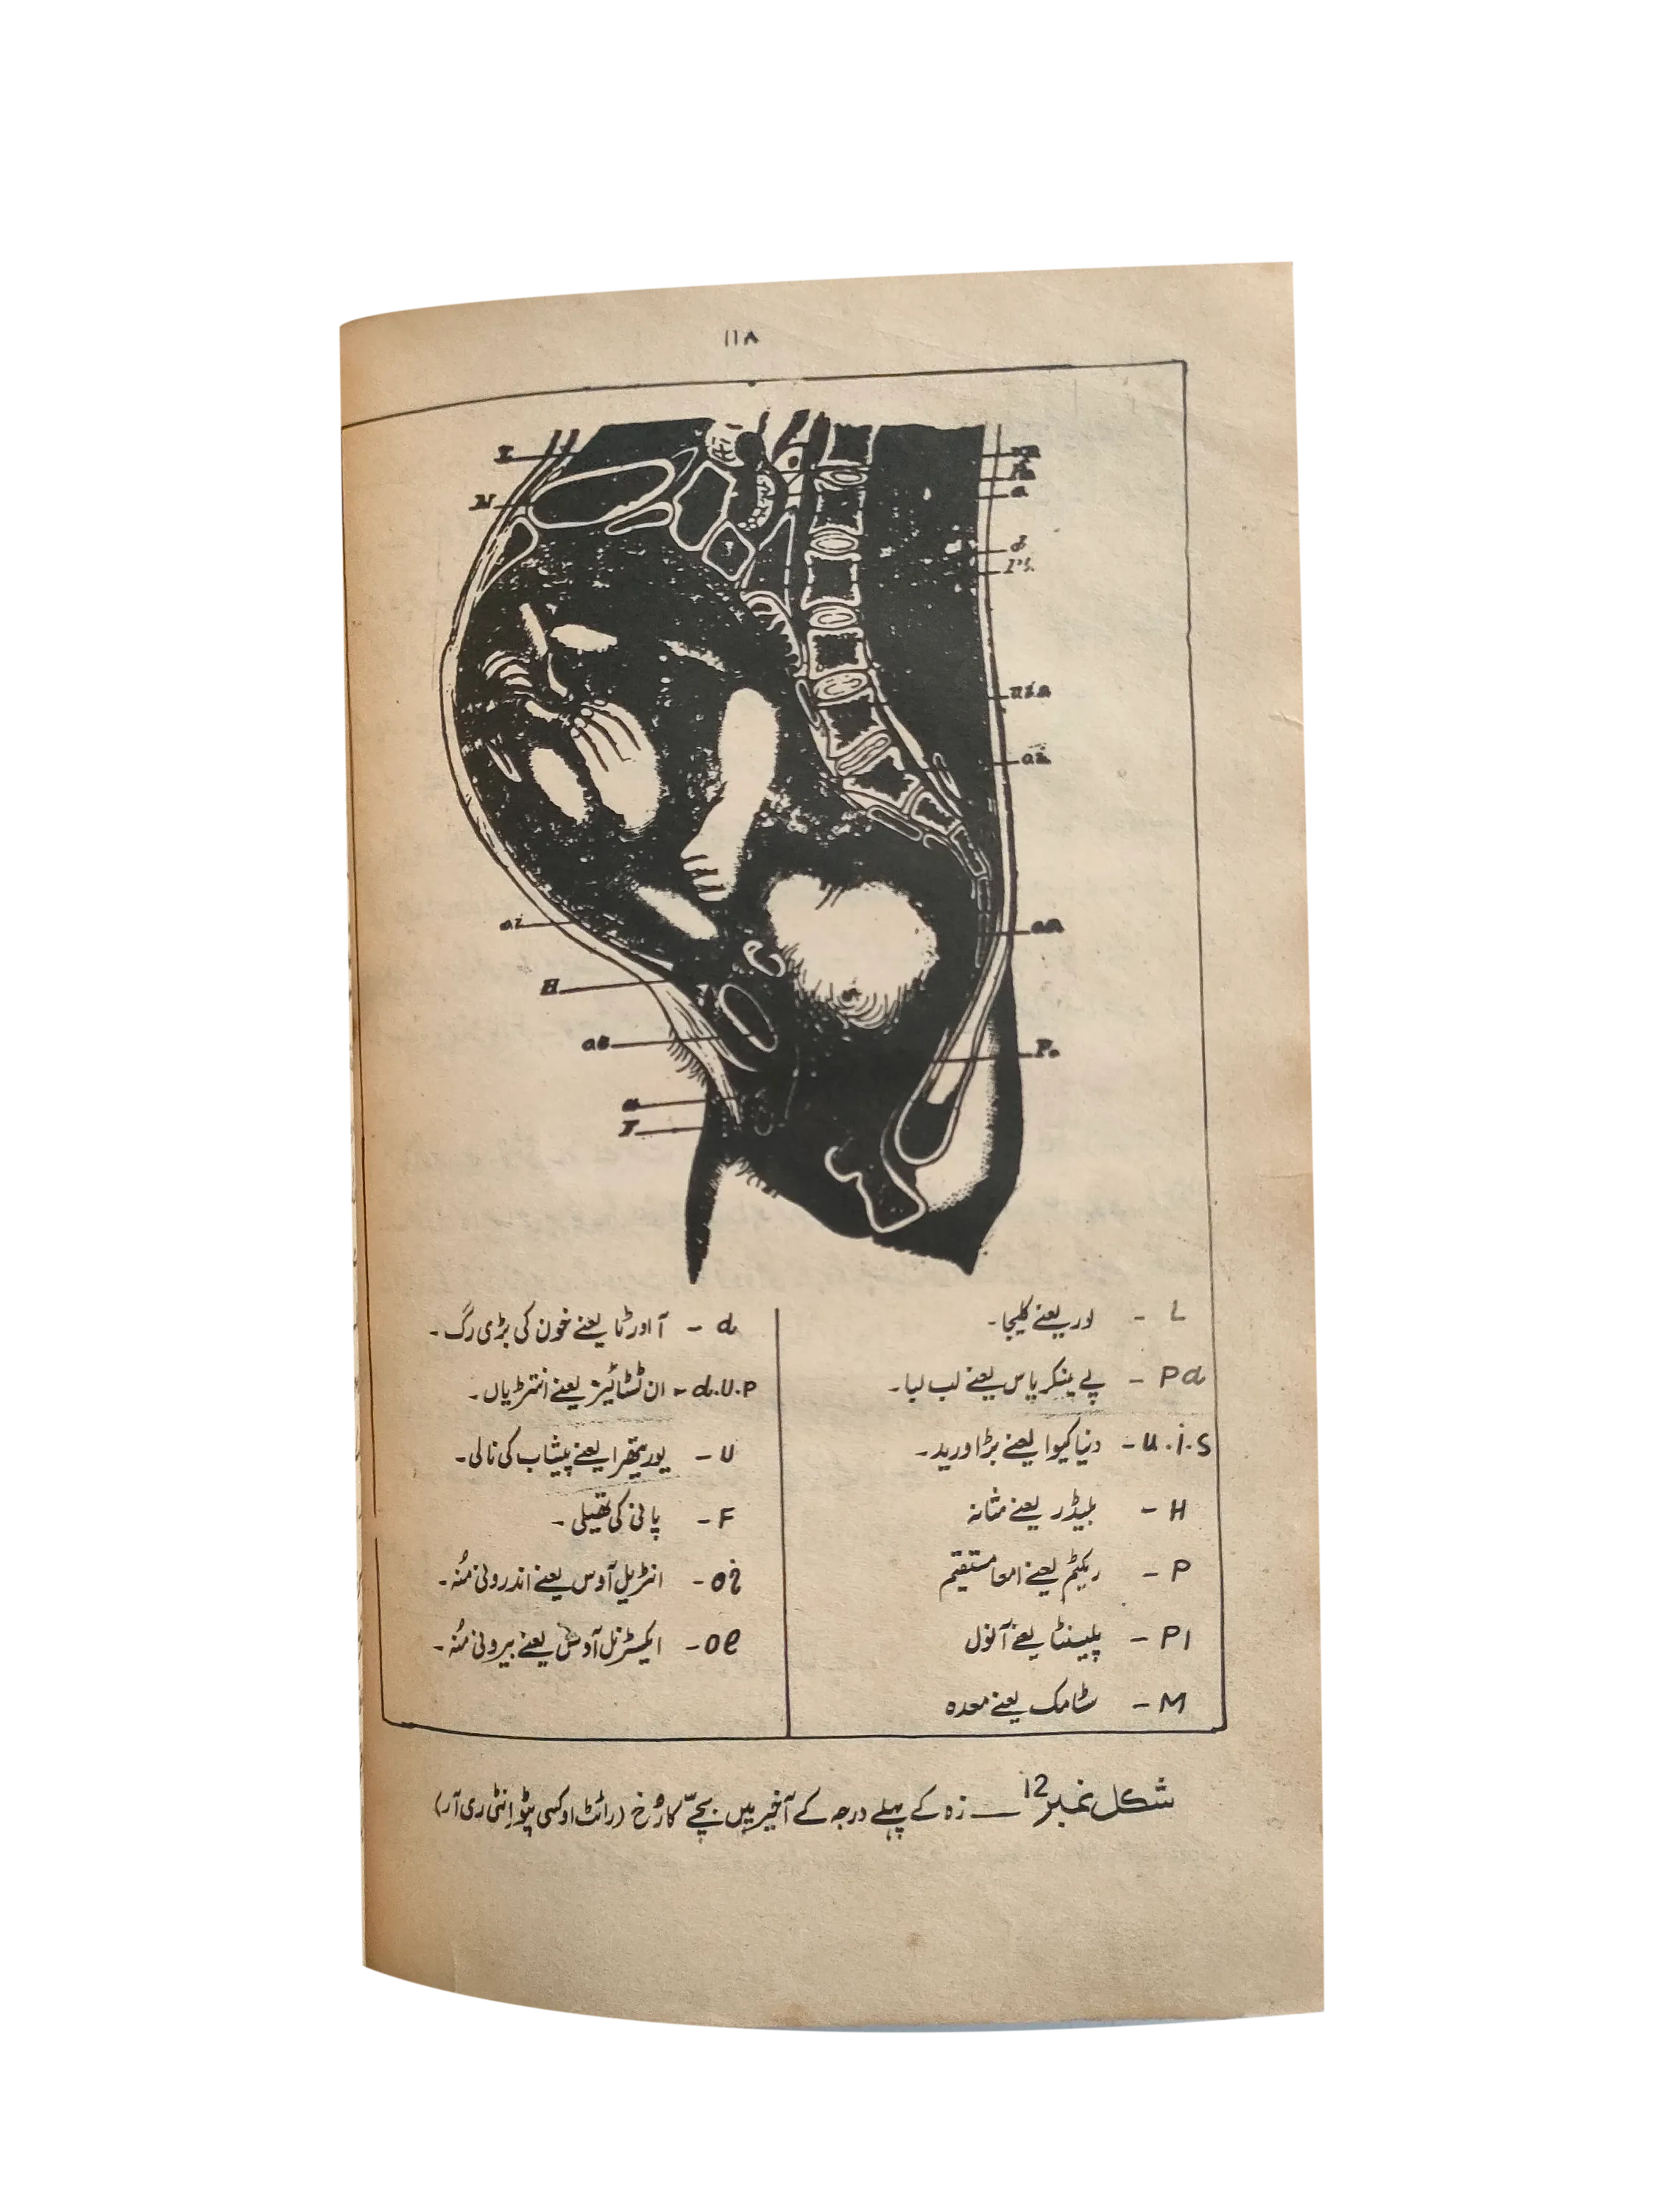 ۱۱۸
L
M
a
d
oi
H
u
F
L - لور یعنے کلیجا۔
Pa - پے ینکریاس یعنے لب لبا۔
u.i.s - دنیا کیوا یعنے بڑا ورید۔
H - بلیڈر یعنے مثانہ
P - ریکٹم یعنے امعا مستقیم
Pl - پلیسنٹا یعنے آنول
M - سٹامک یعنے معدہ
d - آاورٹا یعنے خون کی بڑی رگ۔
d.U.P - ان ٹسٹائینز یعنے انتڑیاں۔
U - یوریتھرا یعنے پیشاب کی نالی۔
F - پانی کی تھیلی۔
oi - انٹرنل آوس یعنے اندرونی مُنہ۔
oe - ایکسٹرنل آوس یعنے بیرونی مُنہ۔
شکل نمبر 12 — زہ کے پہلے درجہ کے آخیر میں بچّے کا رُخ (رائٹ اوکسی پٹو اِنٹی ری آر)